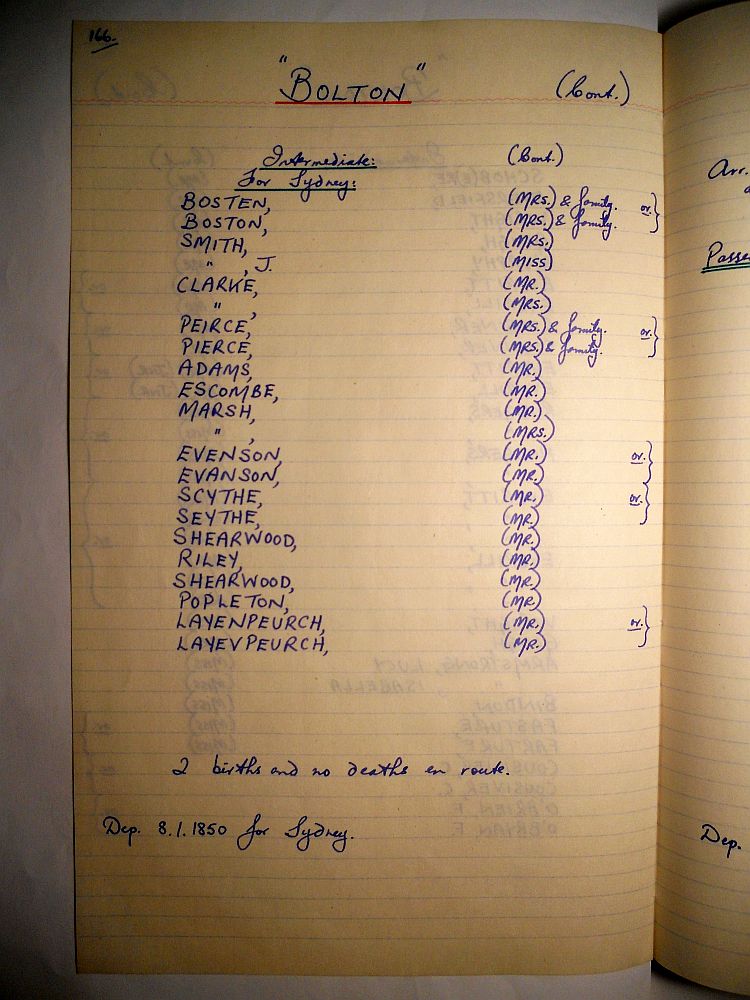 166.
"BOLTON" (Cont.)
Intermediate: (Cont.)
For Sydney:
BOSTEN, (MRS.) & family. or.
BOSTON, (MRS.) & family.
SMITH, (MRS.)
" , J. (MISS)
CLARKE, (MR.)
" (MRS.)
PEIRCE, (MRS.) & family. or.
PIERCE, (MRS.) & family.
ADAMS, (MR.)
ESCOMBE, (MR.)
MARSH, (MR.)
" , (MRS.)
EVENSON, (MR.) or.
EVANSON, (MR.)
SCYTHE, (MR.) or.
SEYTHE, (MR.)
SHEARWOOD, (MR.)
RILEY, (MR.)
SHEARWOOD, (MR.)
POPLETON, (MR.)
LAYENPEURCH, (MR.) or.
LAYEVPEURCH, (MR.)
2 births and no deaths en route.
Dep. 8.1.1850 for Sydney.
Arr.
Passe
Dep.